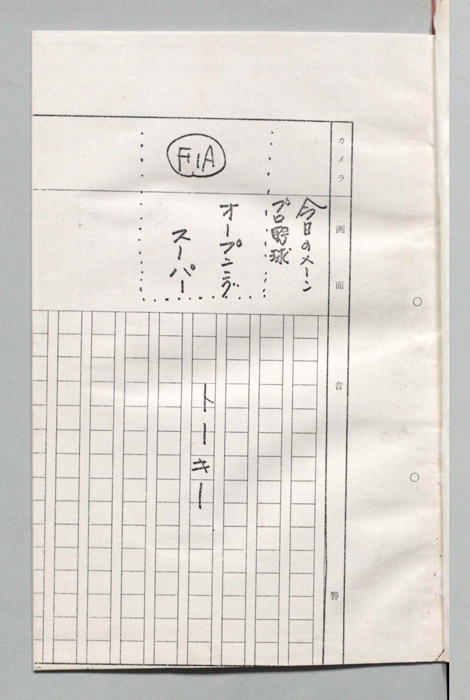 カメラ
画面
音響
今日のメーン
プロ野球
オープニング
スーパー
F1A
トーキー